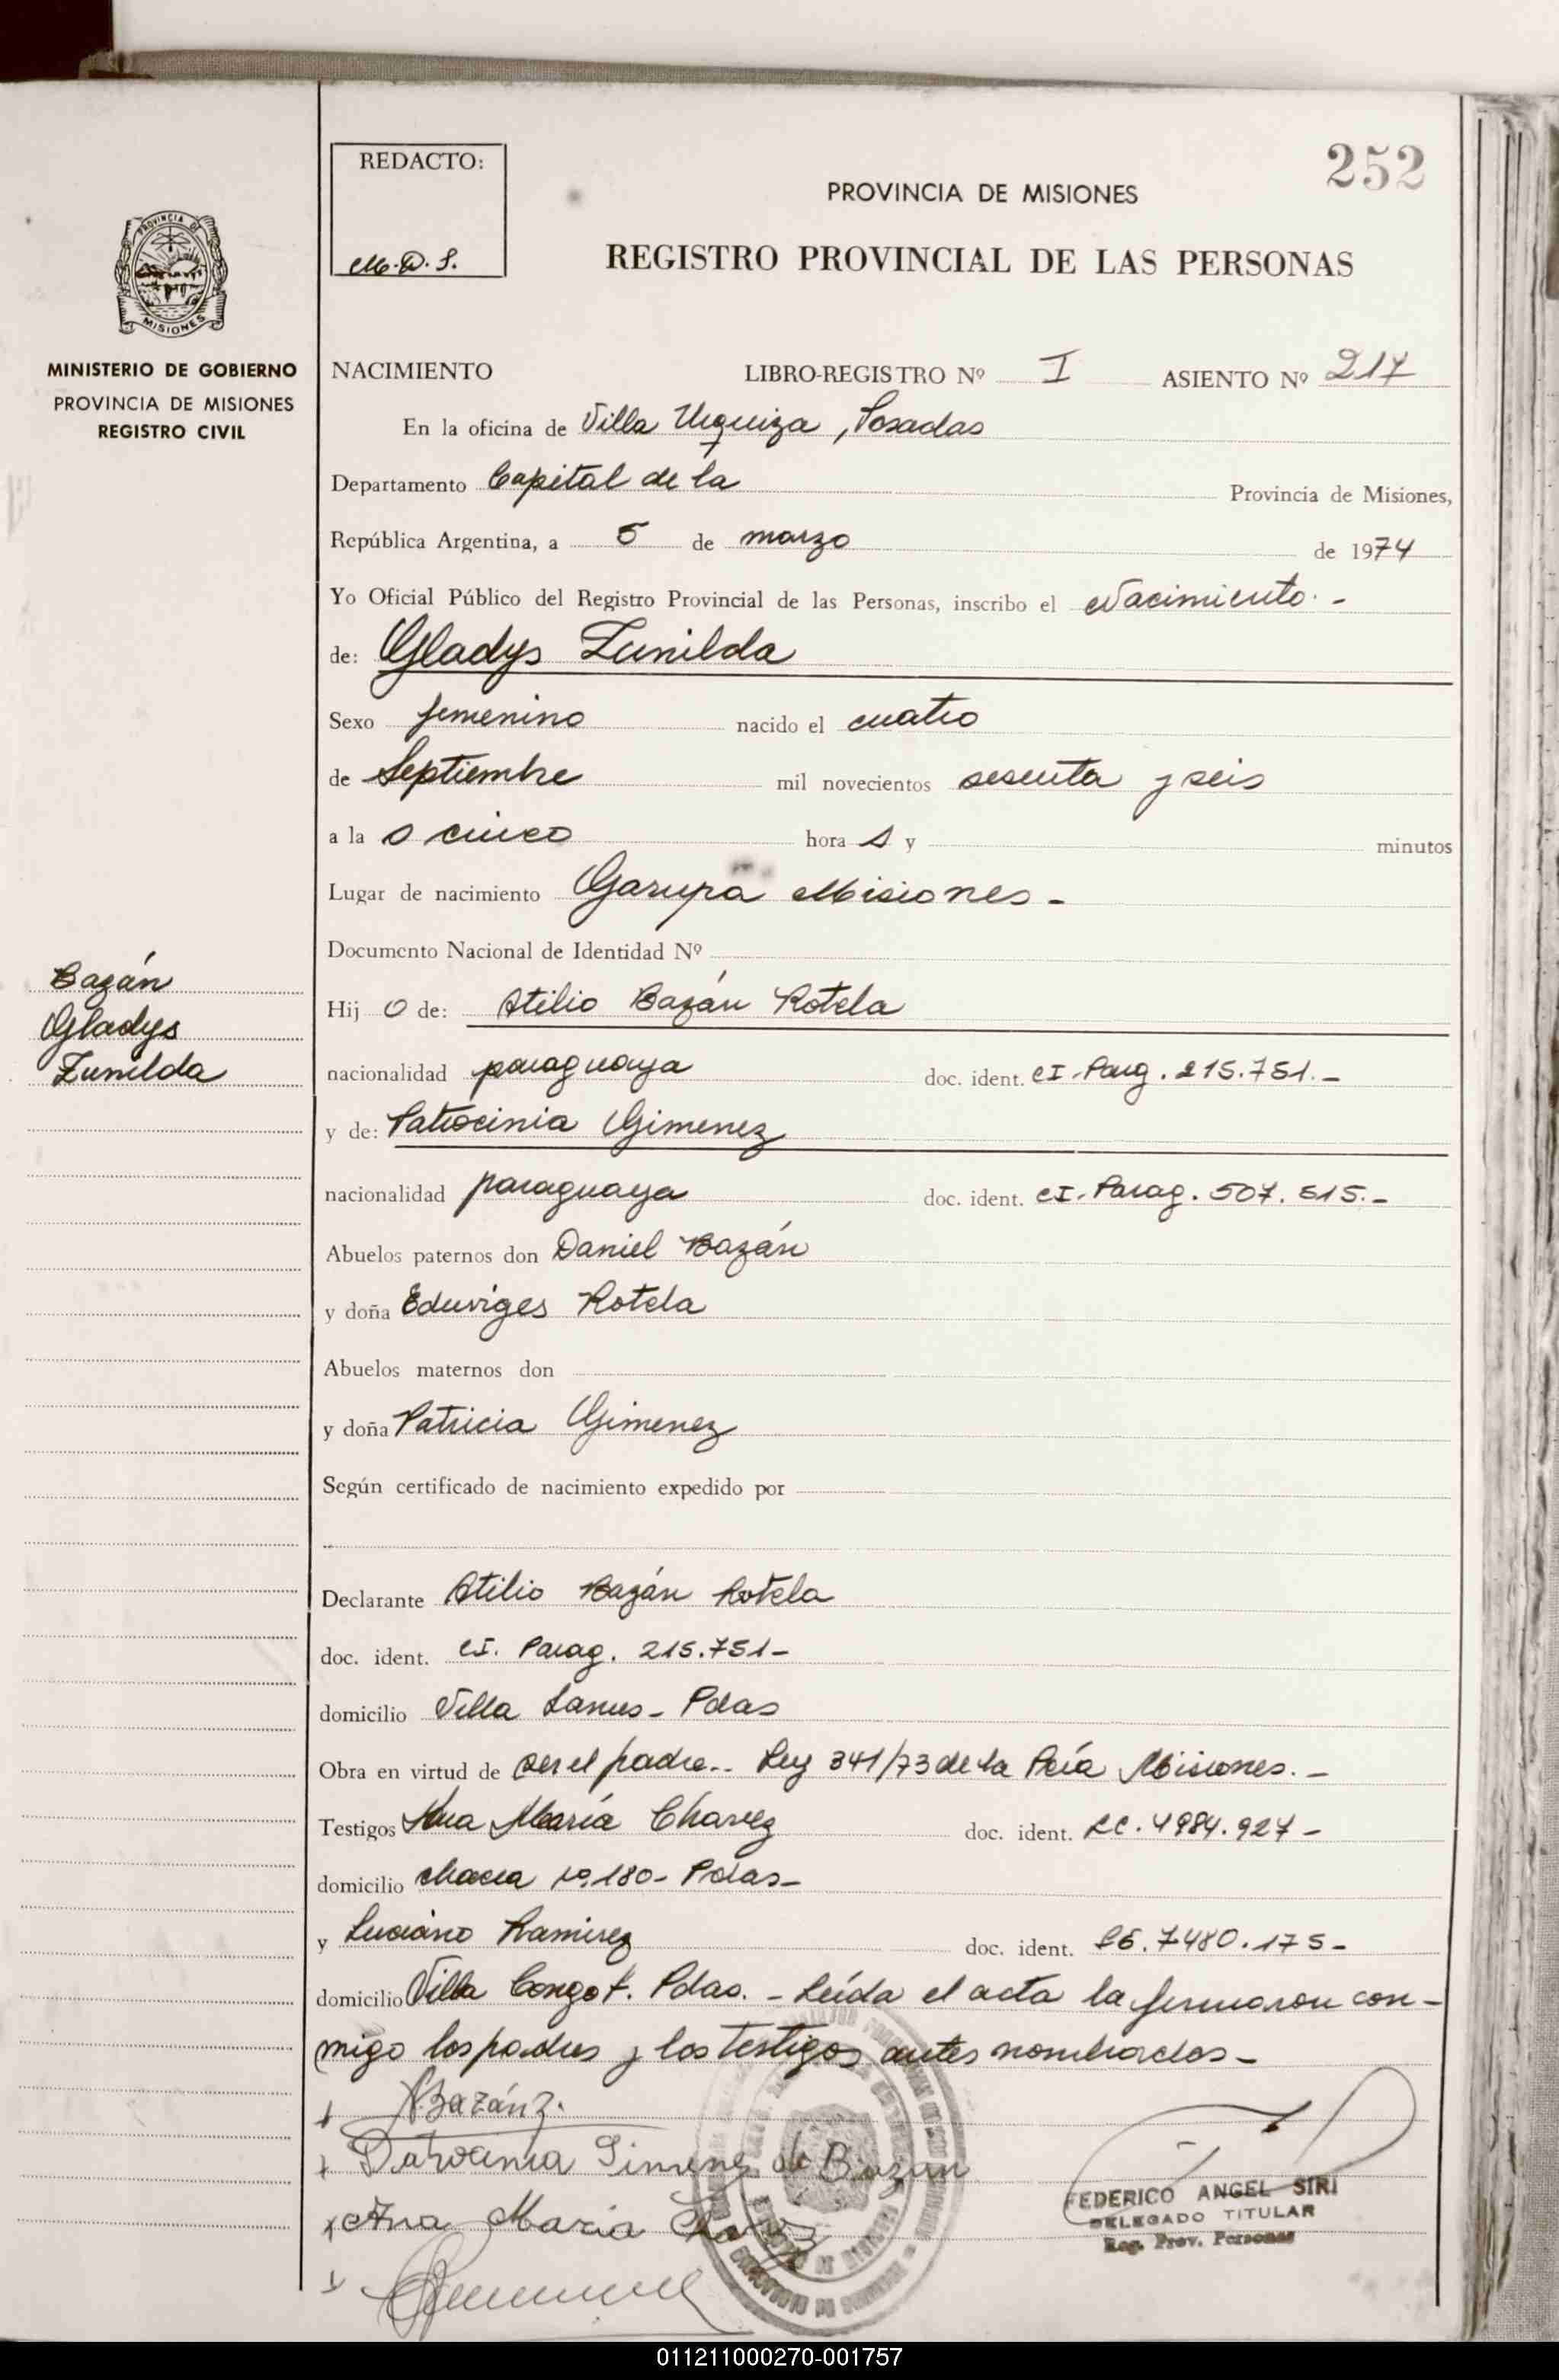 252
REDACTO:
M.D.S.
PROVINCIA DE MISIONES
REGISTRO PROVINCIAL DE LAS PERSONAS
PROVINCIA DE
MISIONES
MINISTERIO DE GOBIERNO
PROVINCIA DE MISIONES
REGISTRO CIVIL
NACIMIENTO LIBRO-REGISTRO Nº I ASIENTO Nº 217
En la oficina de Villa Urquiza, Posadas
Departamento Capital de la Provincia de Misiones,
República Argentina, a 5 de marzo de 1974
Yo Oficial Público del Registro Provincial de las Personas, inscribo el Nacimiento.-
de: Gladys Zunilda
Sexo femenino nacido el cuatro
de Septiembre mil novecientos sesenta y seis
a la s cinco hora s y minutos
Lugar de nacimiento Garupa Misiones-
Documento Nacional de Identidad Nº
Bazán
Gladys
Zunilda
Hij o de: Atilio Bazán Rotela
nacionalidad paraguaya doc. ident. CI. Parg. 215.751.-
y de: Patrocinia Gimenez
nacionalidad paraguaya doc. ident. CI. Parag. 507.515.-
Abuelos paternos don Daniel Bazán
y doña Eduviges Rotela
Abuelos maternos don
y doña Patricia Gimenez
Según certificado de nacimiento expedido por
Declarante Atilio Bazán Rotela
doc. ident. CI. Parag. 215.751-
domicilio Villa Lanus- Pdas
Obra en virtud de ser el padre.- Ley 341/73 de la Pcía Misiones.-
Testigos Ana María Chavez doc. ident. LC. 4984.927-
domicilio chacra Nº 180- Pdas-
y Luciano Ramirez doc. ident. LE. 7480.175-
domicilio Villa Pdas. - Leída el acta la firmaron con-
migo los padres y los testigos antes nombrados-
x Bazán
x Patrocinia Gimenez de Bazan
x Ana Maria
x
FEDERICO ANGEL SIRI
DELEGADO TITULAR
Reg. Prov. Personas
011211000270-001757